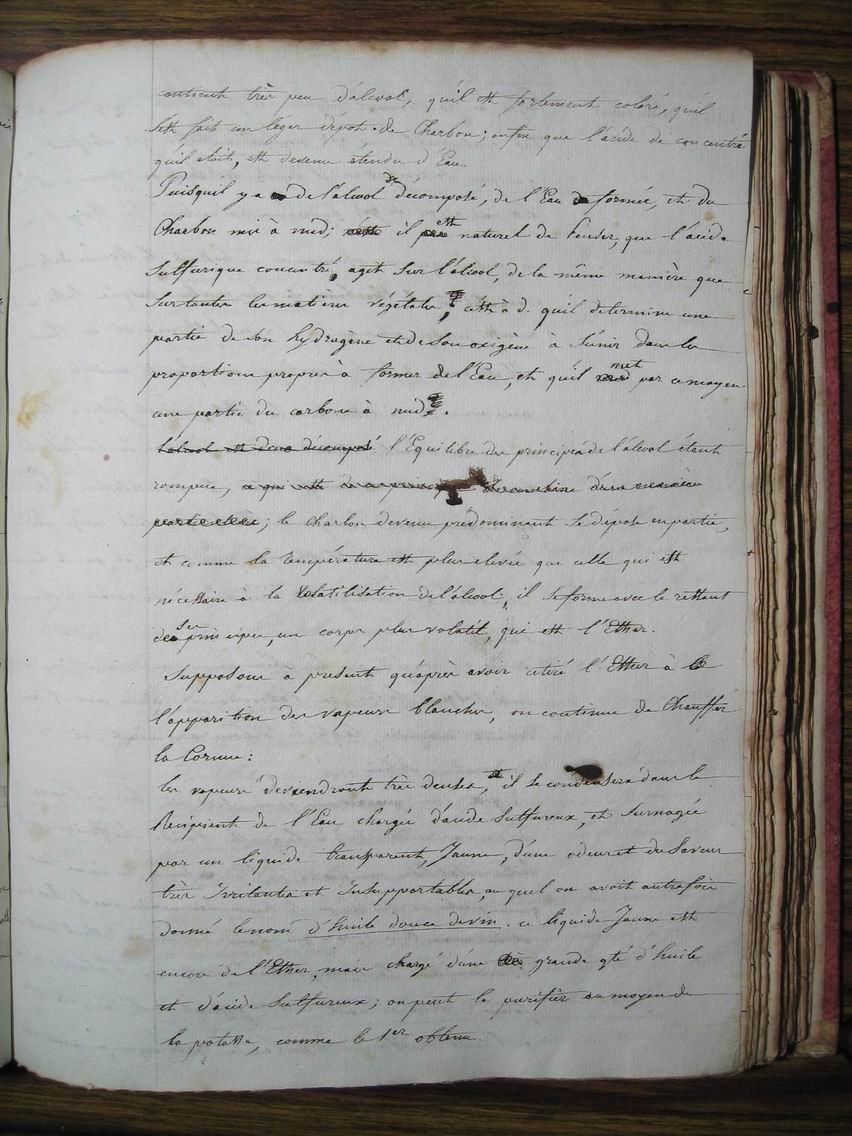 contient très peu d'alcool, qu'il est fortement coloré, qu'il
s'est fait un léger dépot de Charbon; enfin que l'acide de concentré
qu'il etoit, est devenu étendu d'Eau
Puisqu'il y a de l'alcool de décomposé, de l'Eau formée, et du
Charbon mis à nud; il est naturel de penser, que l'acide
Sulfurique concentré, agit sur l'alcool, de la même manière que
sur toutes les matières végétales, c'est à d. qu'il determine une
partie de son hydrogène et de son oxigène à s'unir dans les
proportions propres à former de l'Eau, et qu'il met par ce moyen
une partie du carbone à nud.
l'alcool est donc décomposé l'Equilibre des principes de l'alcool étant
rompue,
; le charbon devenu prédominant se dépose en partie,
et comme la température est plus elevée que celle qui est
nécessaire à la volatilisation de l'alcool, il se forme avec le restant
de ses principes, un corps plus volatil, qui est l'Ether.
Supposons à présent qu'après avoir retiré l'Ether à
l'apparition des vapeurs blanches, on continue de chauffer
la Cornue:
les vapeurs deviendront très denses, et il se condensera dans le
Récipient de l'Eau chargée d'acide Sulfureux, et surnagée
par un liquide transparent, Jaune, d'une odeur et du Saveur
très Irritantes et Insupportables, au quel on avoit autrefois
donné le nom d'huile douce de vin. ce liquide Jaune est
encore de l'Ether, mais chargé d'une grande qté d'huile
et d'acide Sulfureux; on peut le purifier au moyen de
la potasse, comme le 1er obtenu.